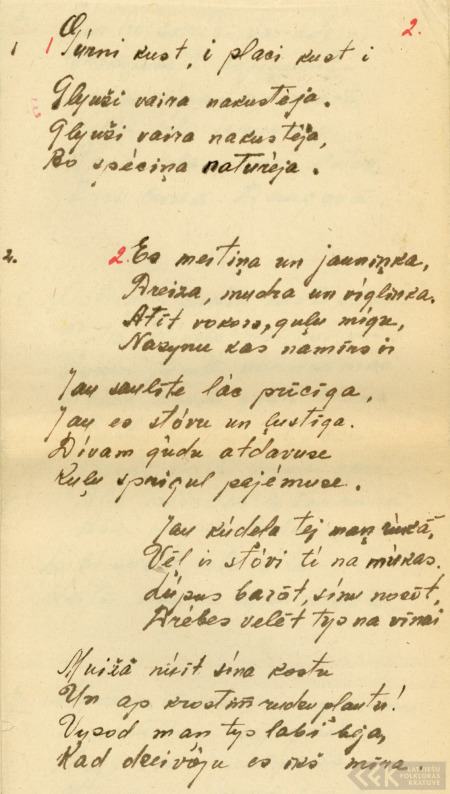 2.
1 1 Pūrni kust, i placi kust i
Glyuži vaira nakustēja.
Glyuži vaira nakustēja,
Bo spēciņa naturēja.
2. 2. Es meitiņa un jauniņka,
Dreiza, mudra un viglinka.
Atīt vokors, guļu mīgu,
Nazynu kas namīrs ir
Jau saulīte lāc prīcīga,
Jau es stōvu un ļustīga.
Dīvam gūdu atdavuse
Kuļu sprigul pajēmuse.
Jau kūdeļa tej maņ rūkā,
Vēļ ir stōvi tī na mūkas.
barōt, sīnu nosōt,
Drēbes velēt tys na vīnai
Muižā nīsīt sīna kostu
Un ap krostim rudzu plautu!
Vysod man tys labi beja,
Kad dzeivōju es iкš mīra.
LATVIEŠU
FOLKLORAS
KRĀTUVE